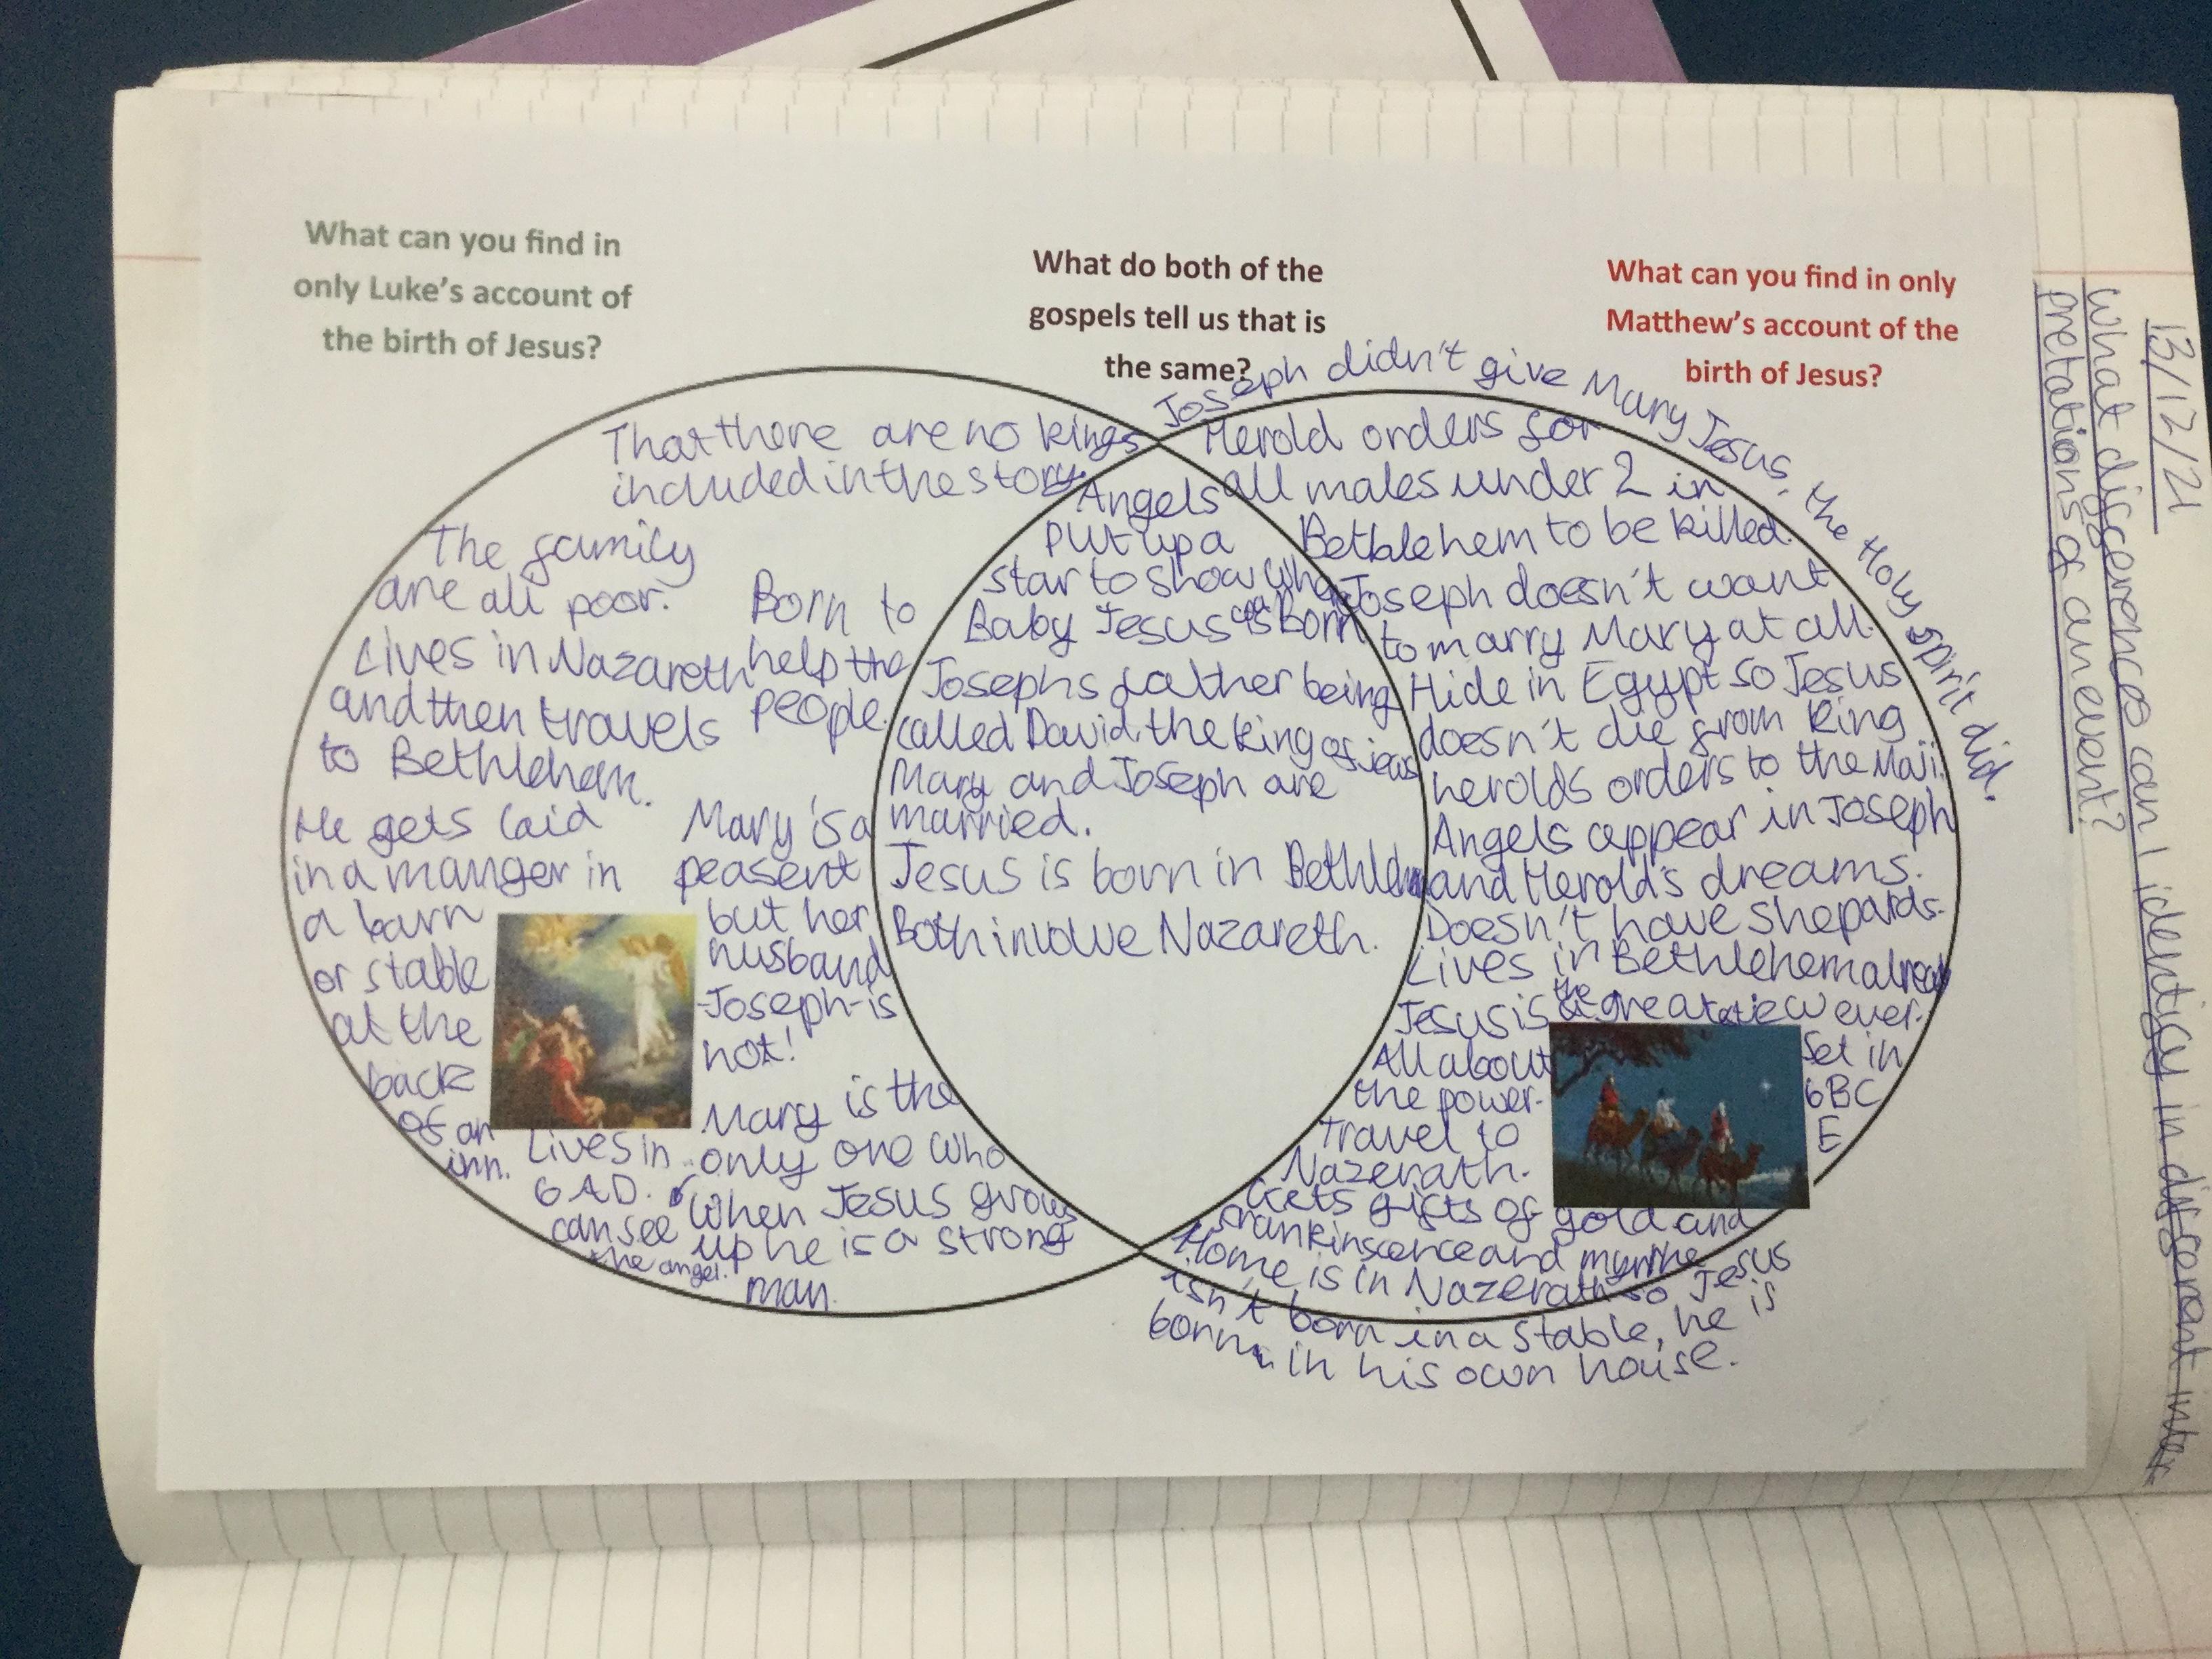 13/12/21
What differences can I identify in different inter
pretations of an event?
What can you find in
only Luke's account of
the birth of Jesus?
What do both of the
gospels tell us that is
the same?
What can you find in only
Matthew's account of the
birth of Jesus?
That there are no kings
included in the story.
The family
are all poor.
Lives in Nazareth
and then travels
to Bethlehem.
Born to
help the
people.
He gets laid
in a manger in
a barn
or stable
at the
back
of an
inn.
Mary is a
peasent
but her
husband
-Joseph-is
not!
Lives in
6 AD.
Mary is the
only one who
can see
the angel.
When Jesus grows
up he is a strong
man.
Angels
put up a
star to show where
Baby Jesus was Born
Josephs father being
called David, the king of jews
Mary and Joseph are
married.
Jesus is born in Bethlehem
Both involve Nazareth.
Joseph didn't give Mary Jesus, the Holy spirit did.
Herold orders for
all males under 2 in
Bethlehem to be killed.
Joseph doesn't want
to marry Mary at all.
Hide in Egypt so Jesus
doesn't die from king
herolds orders to the Maji.
Angels appear in Joseph
and Herold's dreams.
Doesn't have shepards.
Lives in Bethlehem already
Jesus is the greatest jew ever.
All about
the power.
Set in
6BC
E
Travel to
Nazerath.
Gets gifts of gold and
frankinscence and myrrhe
Home is in Nazerath so Jesus
isn't born in a stable, he is
born in his own house.